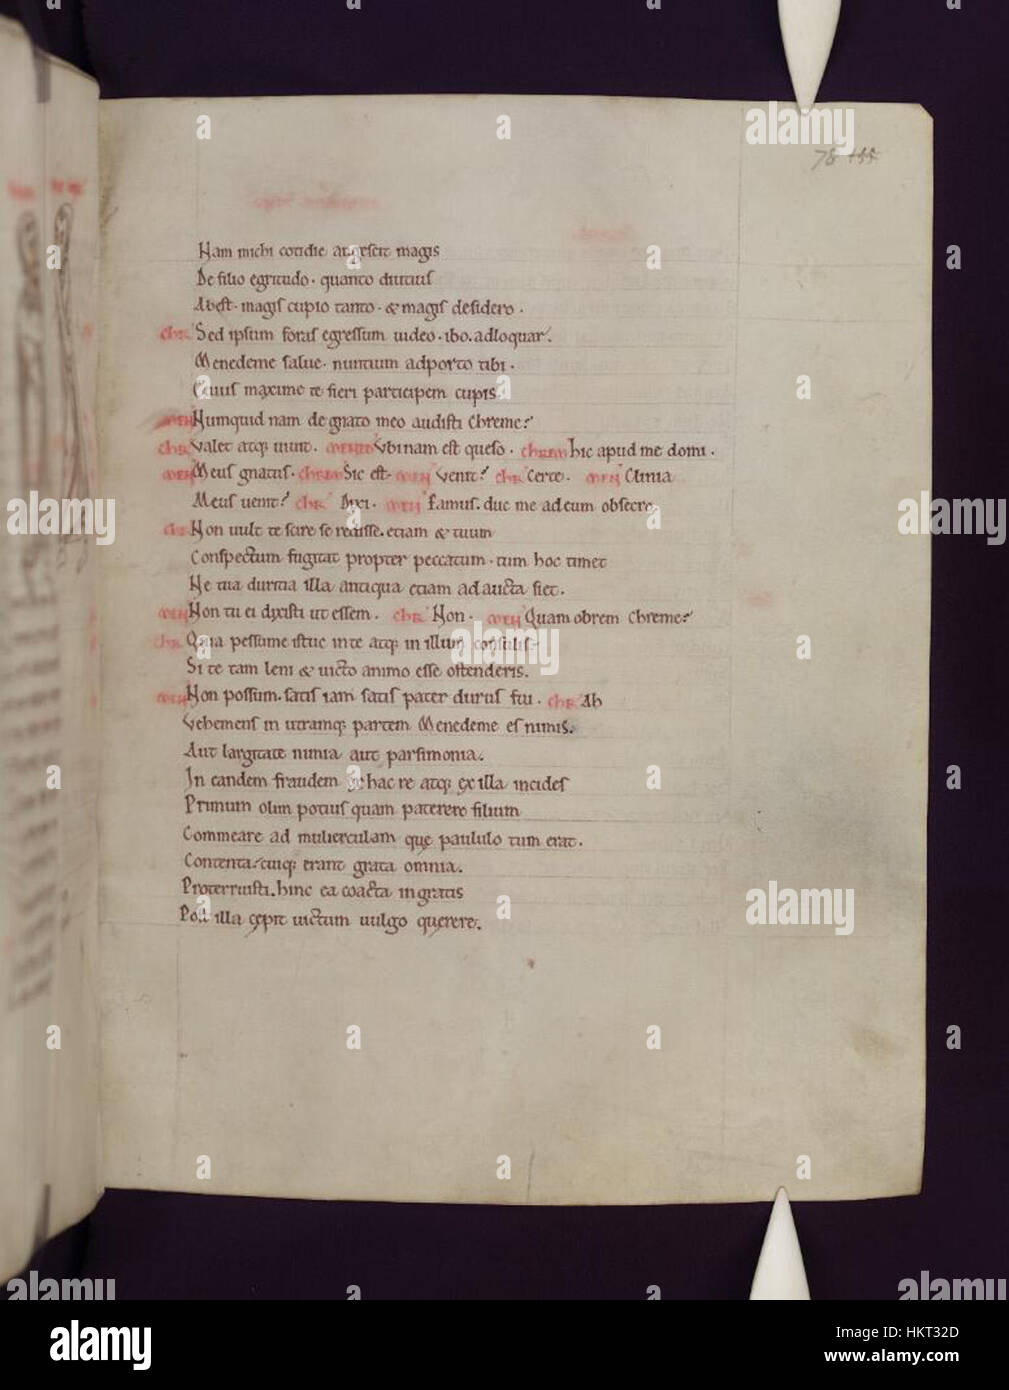 78 155
Nam michi cotidie augescit magis
De filio egritudo. quanto diutius
Abest. magis cupio tanto. & magis desidero.
CHR Sed ipsum foras egressum uideo. ibo. adloquar.
Menedeme salue. nuntium adporto tibi.
Cuius maxime te fieri participem cupis.
MEN Numquid nam de gnato meo audisti Chreme?
CHR Valet atq; uiuit. MENED Vbi nam est queso. CHREM hic apud me domi.
MEN Meus gnatus. CHREM Sic est. MEN Venit? CHR Certe. MEN Clinia
Meus uenit? CHR Dixi. MEN Eamus. duc me ad eum obsecro.
CHR Non uult te scire se redisse. etiam & tuum
Conspectum fugitat propter peccatum. tum hoc timet
Ne tua duritia illa antiqua etiam adaucta siet.
MEN Non tu ei dixisti ut essem. CHR Non. MEN Quam obrem Chreme?
CHR Quia pessume istuc in te atq; in illum consulis.
Si te tam leni & uicto animo esse ostenderis.
MEN Non possum. satis iam satis pater durus fui. CHR Ah
Vehemens in utramq; partem Menedeme es nimis.
Aut largitate nimia aut parsimonia.
In eandem fraudem ex hac re atq; ex illa incides
Primum olim potius quam paterere filium
Commeare ad mulierculam que paululo tum erat.
Contenta. cuiq; erant grata omnia.
Proterruisti. hinc ea coacta ingratis
Post illa cepit uictum uulgo querere.
alamy
alamy
alamy
alamy
alamy
alamy
Image ID: HKT32D
www.alamy.com